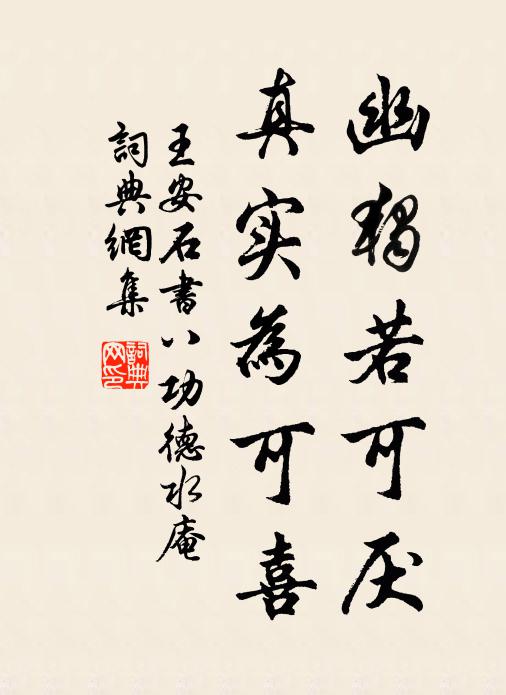 幽獨若可厌
真实為可喜
王安石書八功德水庵
詞典網集
詞典網印